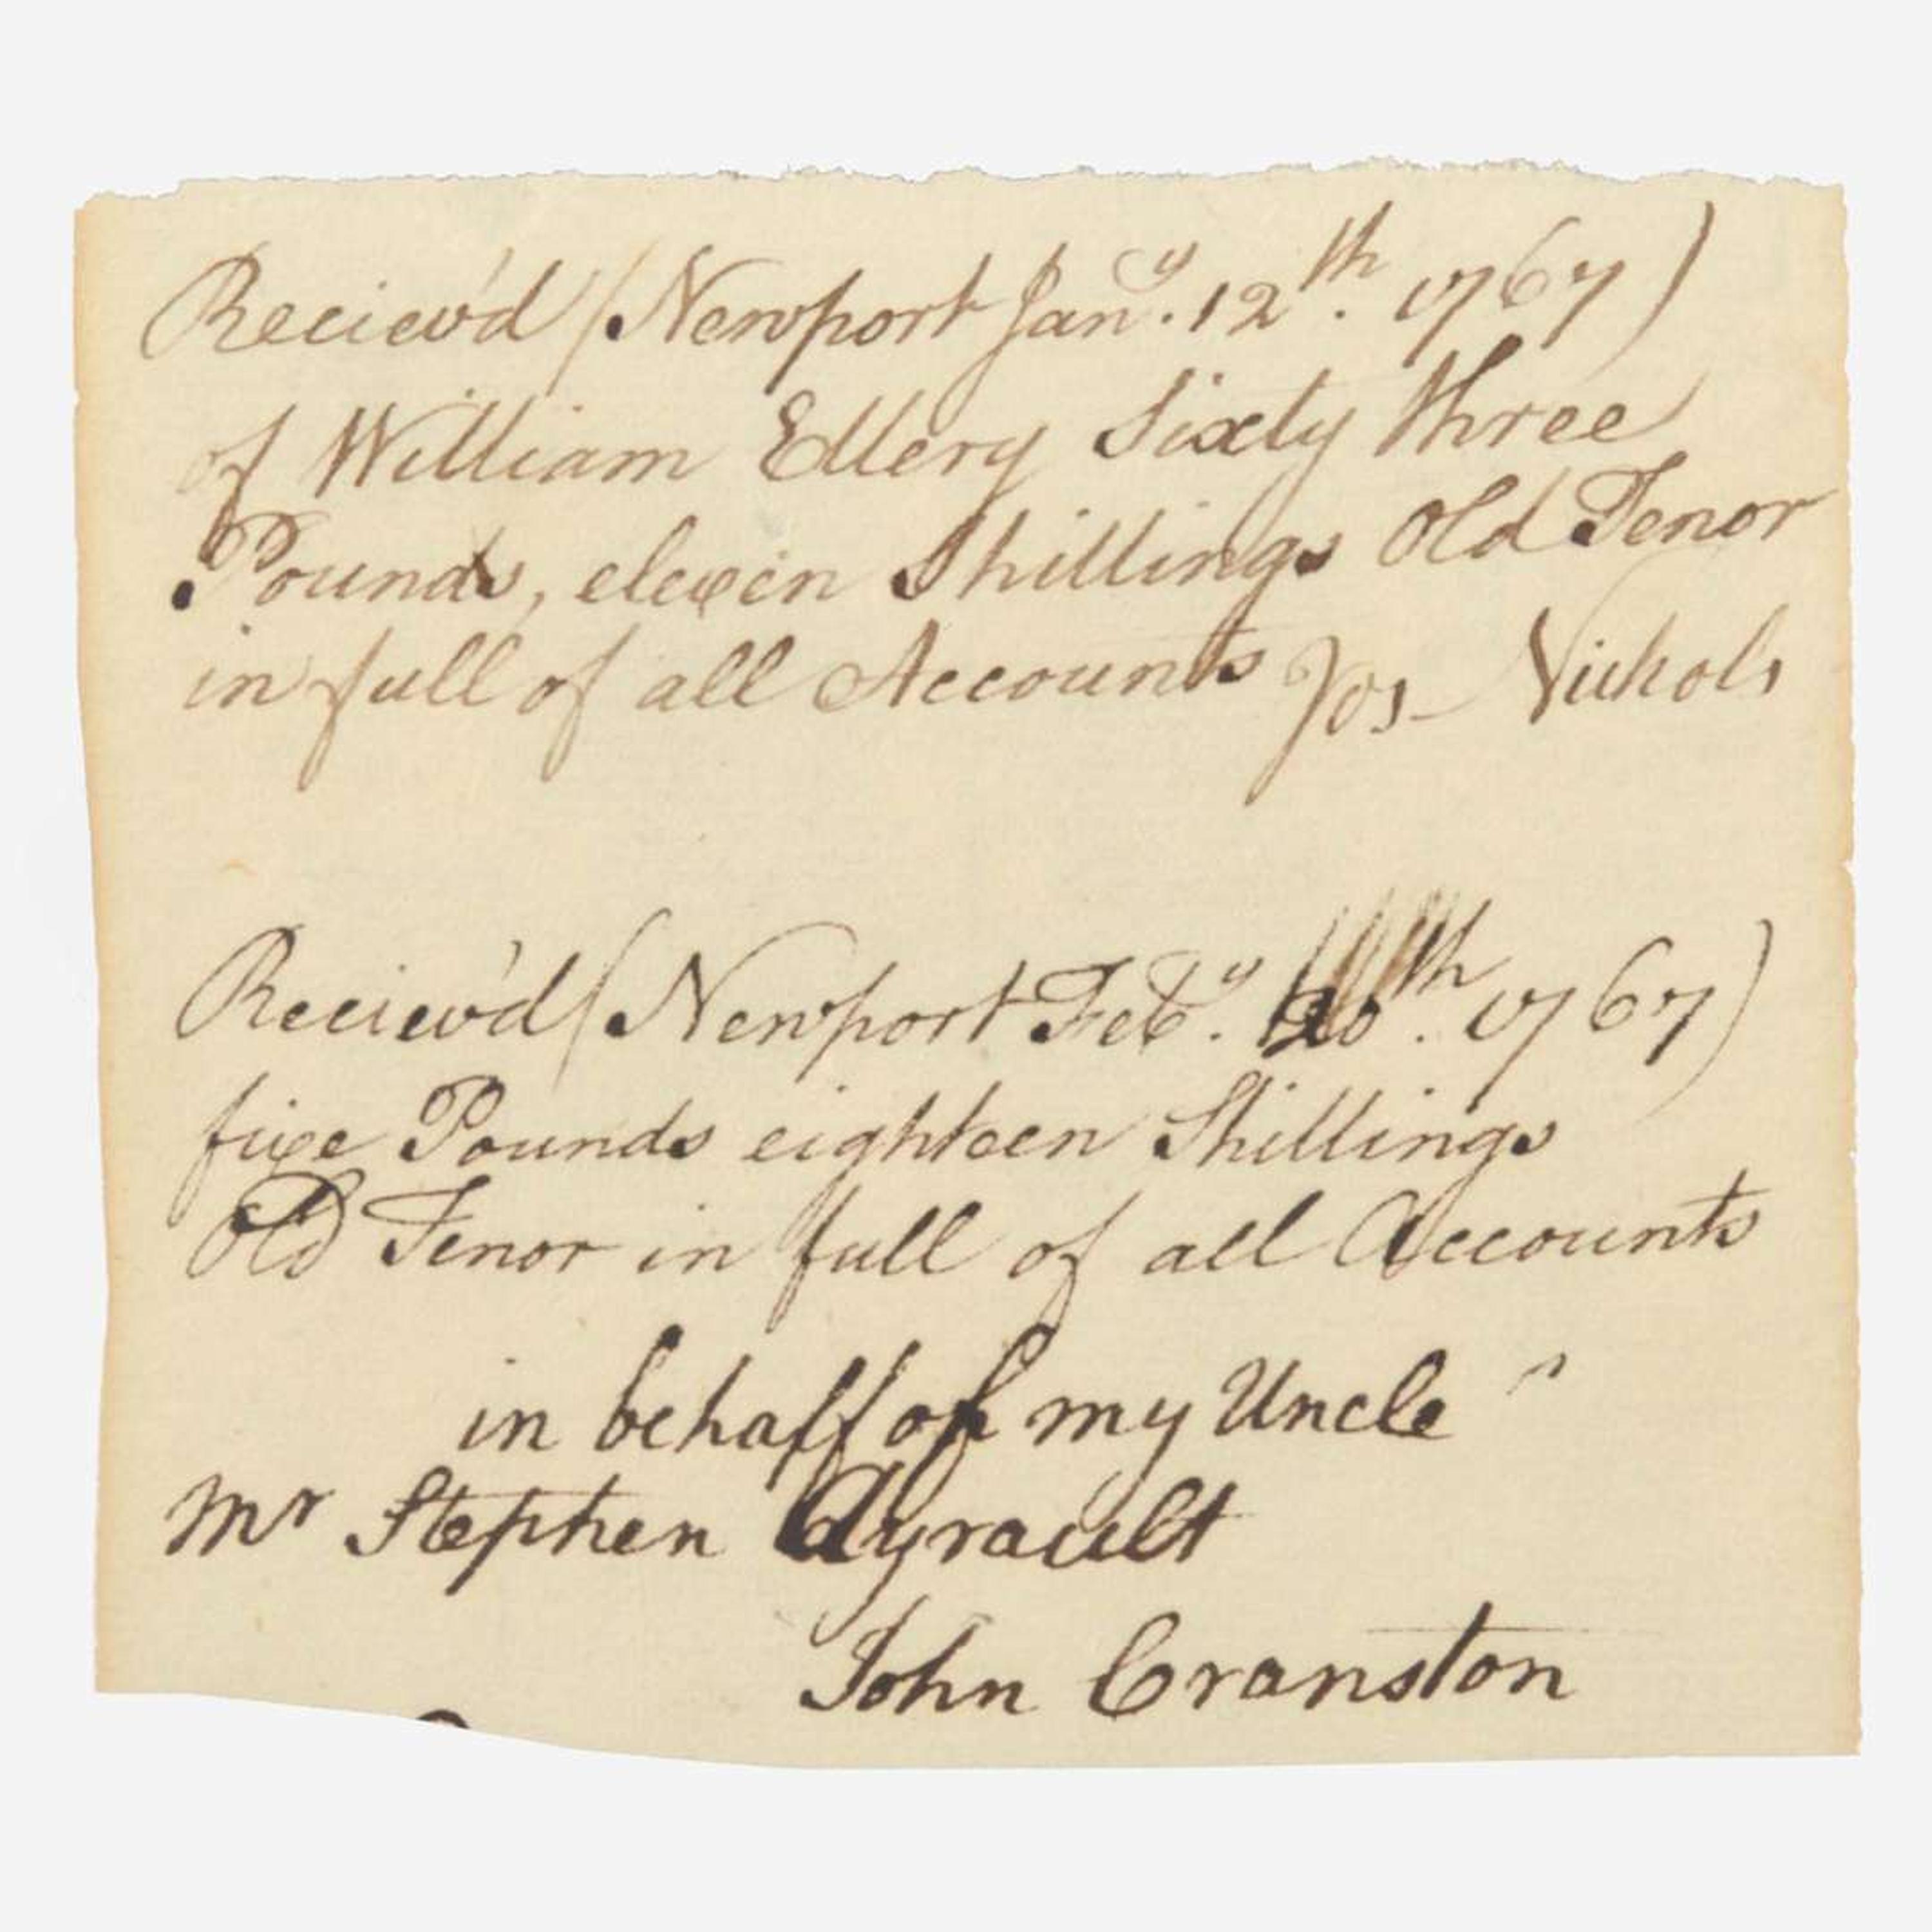 Reciev'd (Newport Jany. 12th. 1767)
of William Ellery Sixty three
Pounds, eleven Shillings Old Tenor
in full of all Accounts Jos Nichols
Reciev'd (Newport Feby. 20th. 1767)
five Pounds eighteen Shillings
Old Tenor in full of all Accounts
in behalf of my Uncle
Mr Stephen Ayrault
John Cranston